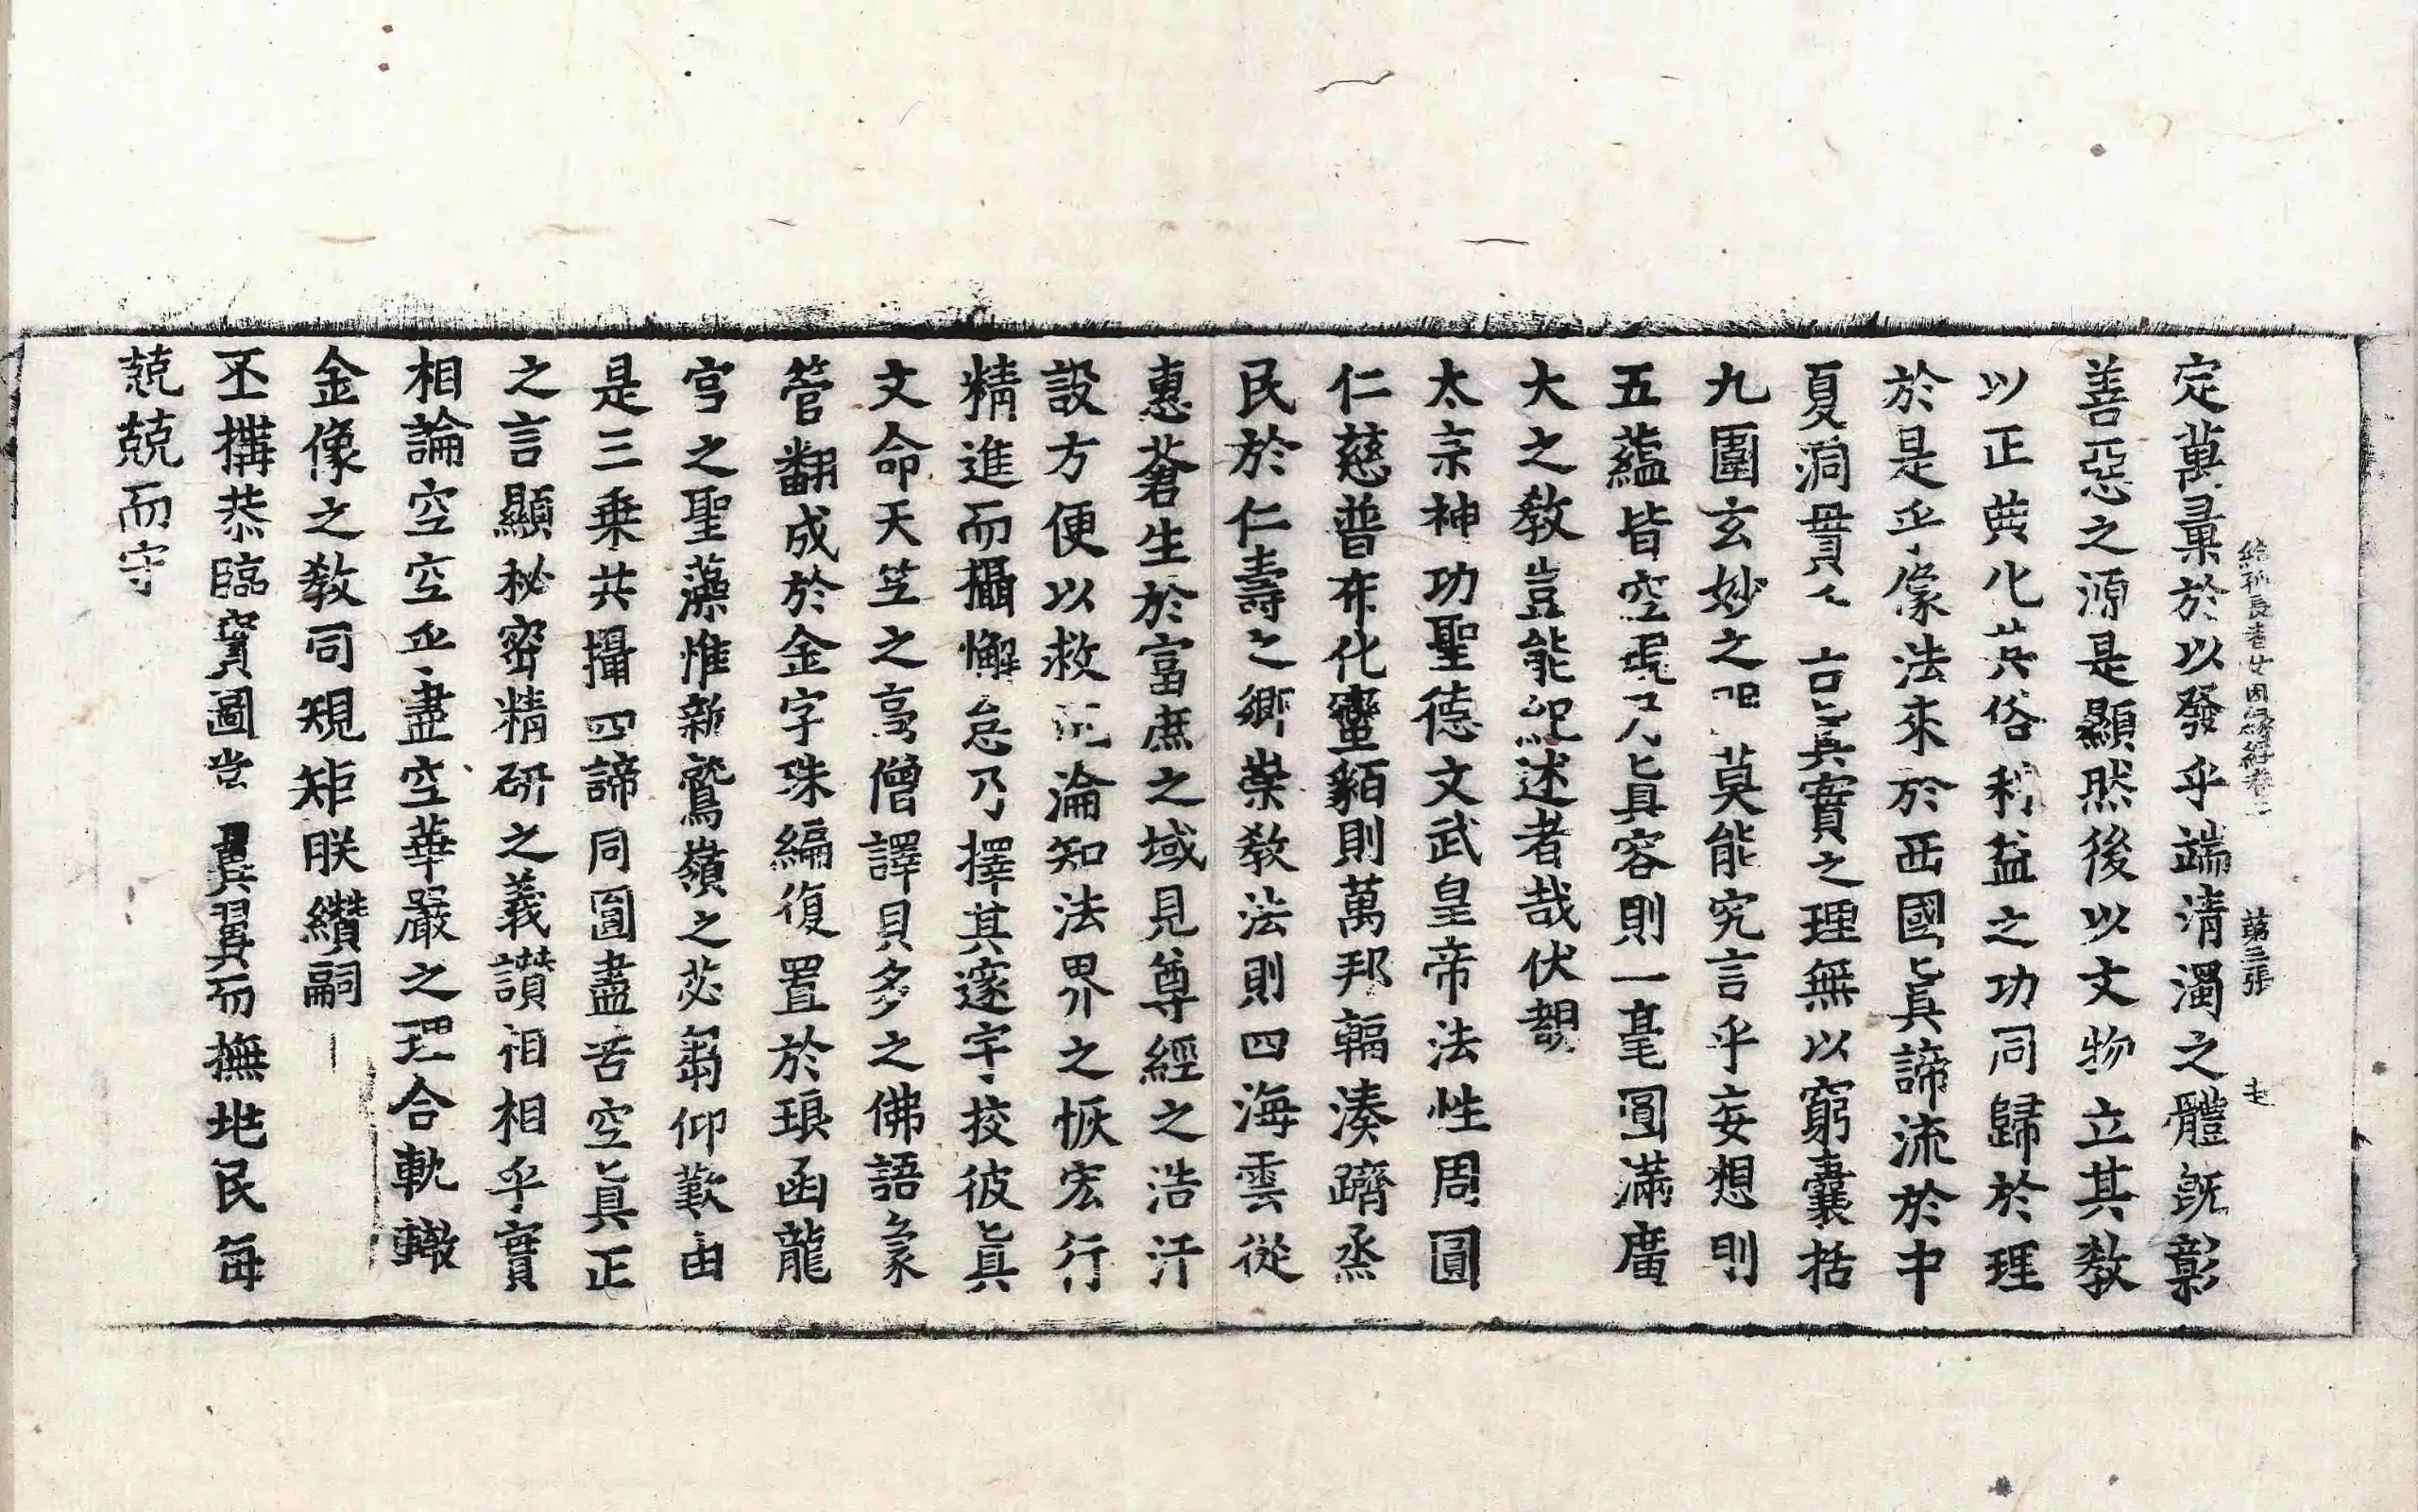 定萬彙於以發乎端清濁之體旣彰
善惡之源是顯然後以文物立其教
以正典化其俗利益之功同歸於理
於是乎像法來於西國眞諦流於中
夏洞貫 言眞實之理無以窮囊括
九圍玄妙之 莫能究言乎妄想則
五蘊皆空 眞容則一毫圓滿廣
大之教豈能紀述者哉伏覩
太宗神功聖德文武皇帝法性周圓
仁慈普布化蠻貊則萬邦輻湊躋烝
民於仁壽之鄉崇教法則四海雲從
惠蒼生於富庶之域見尊經之浩汗
設方便以救 淪知法界之恢宏行
精進而攝懈怠乃擇其邃宇挍彼眞
文命天笁之高僧譯貝多之佛語象
管翻成於金字珠編復置於琅函龍
宮之聖藻惟新鷲嶺之苾蒭仰歎由
是三乗共攝四諦同圓盡苦空眞正
之言顯秘密精研之義讃相相乎實
相論空空乎盡空華嚴之理合軌轍
金像之教同規矩朕纘嗣
丕搆恭臨寶圖 翼翼而撫地民每
兢兢而守
給孤長者女因緣經卷 第三張